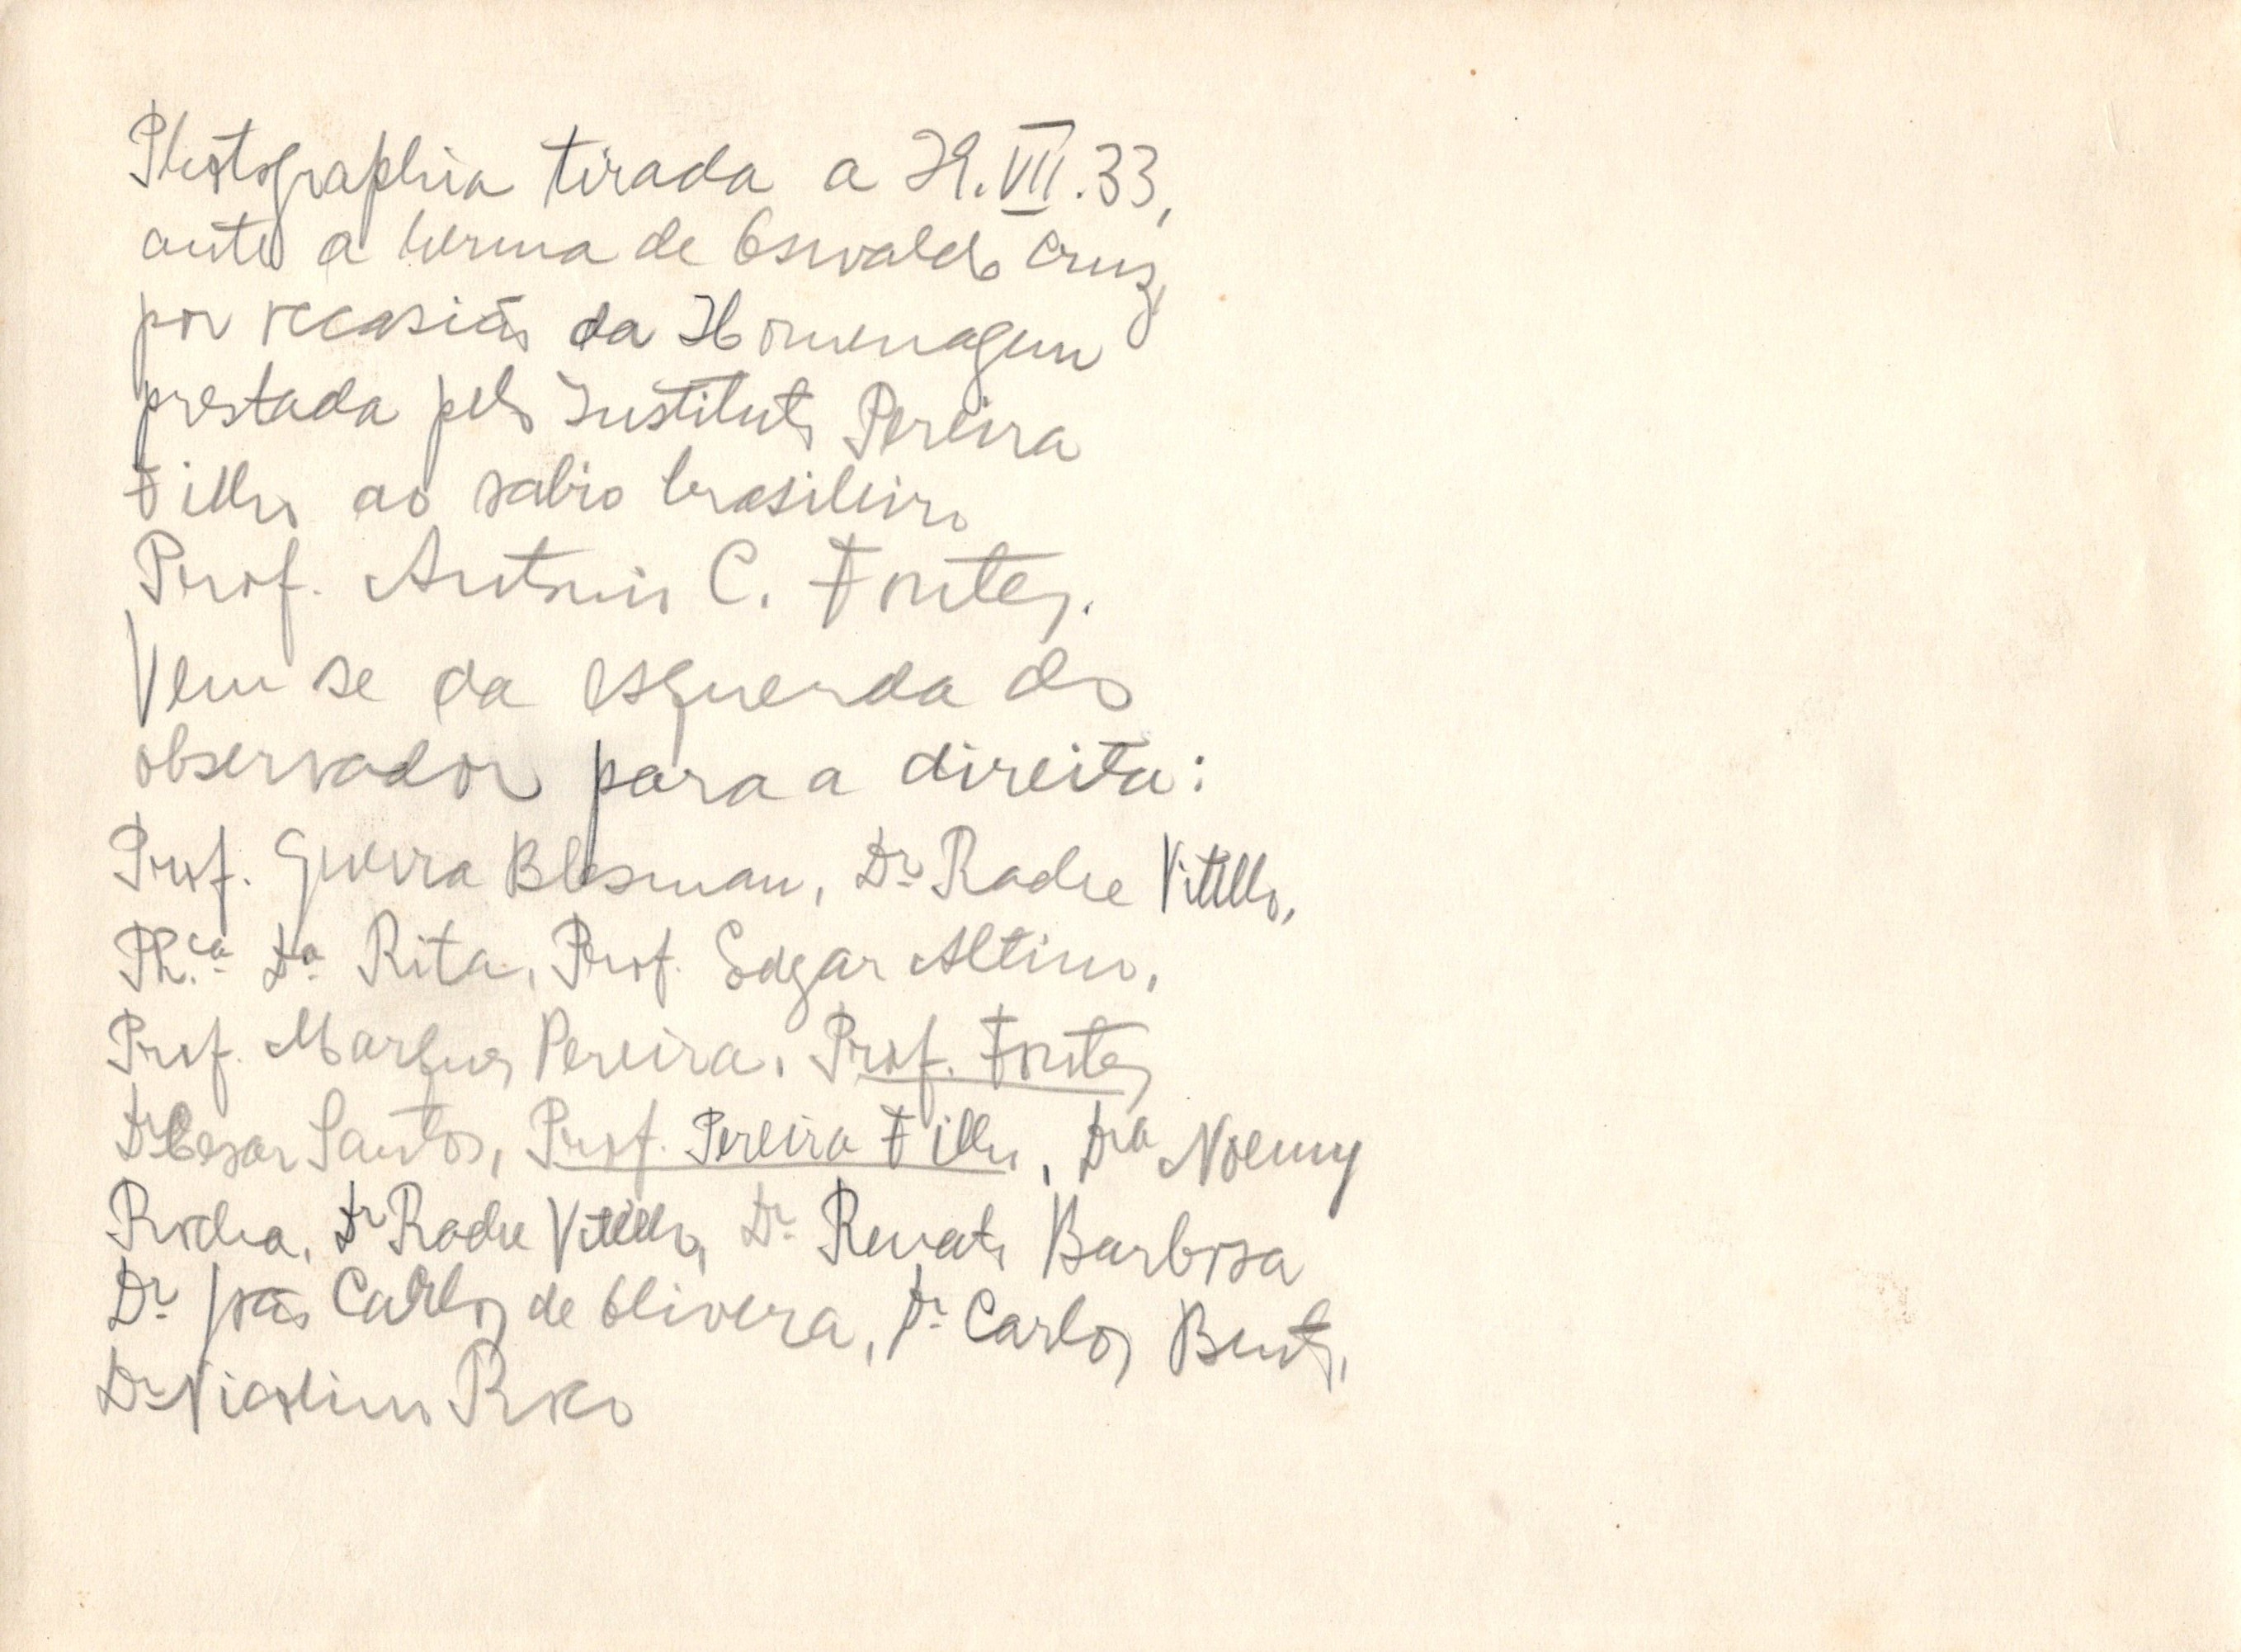 Photographia tirada a 29.VII.33,
ante a herma de Oswaldo Cruz,
por occasião da Homenagem
prestada pelo Instituto Pereira
Filho ao sabio brasileiro
Prof. Antonio C. Fontes.
Vem se da esquerda do
observador para a direita:
Prof. Guerra Blesman, Dr Rache Vitello,
Ph.ca Da Rita, Prof. Edgar Altino,
Prof. Marques Pereira, Prof. Fontes
Dr Cesar Santos, Prof. Pereira Filho, Dra Noemy
Rocha, Dr Rache Vitello, Dr Renato Barbosa
Dr João Carlos de Olivera, Dr Carlos Bento,
Dr Nicolino Rocco